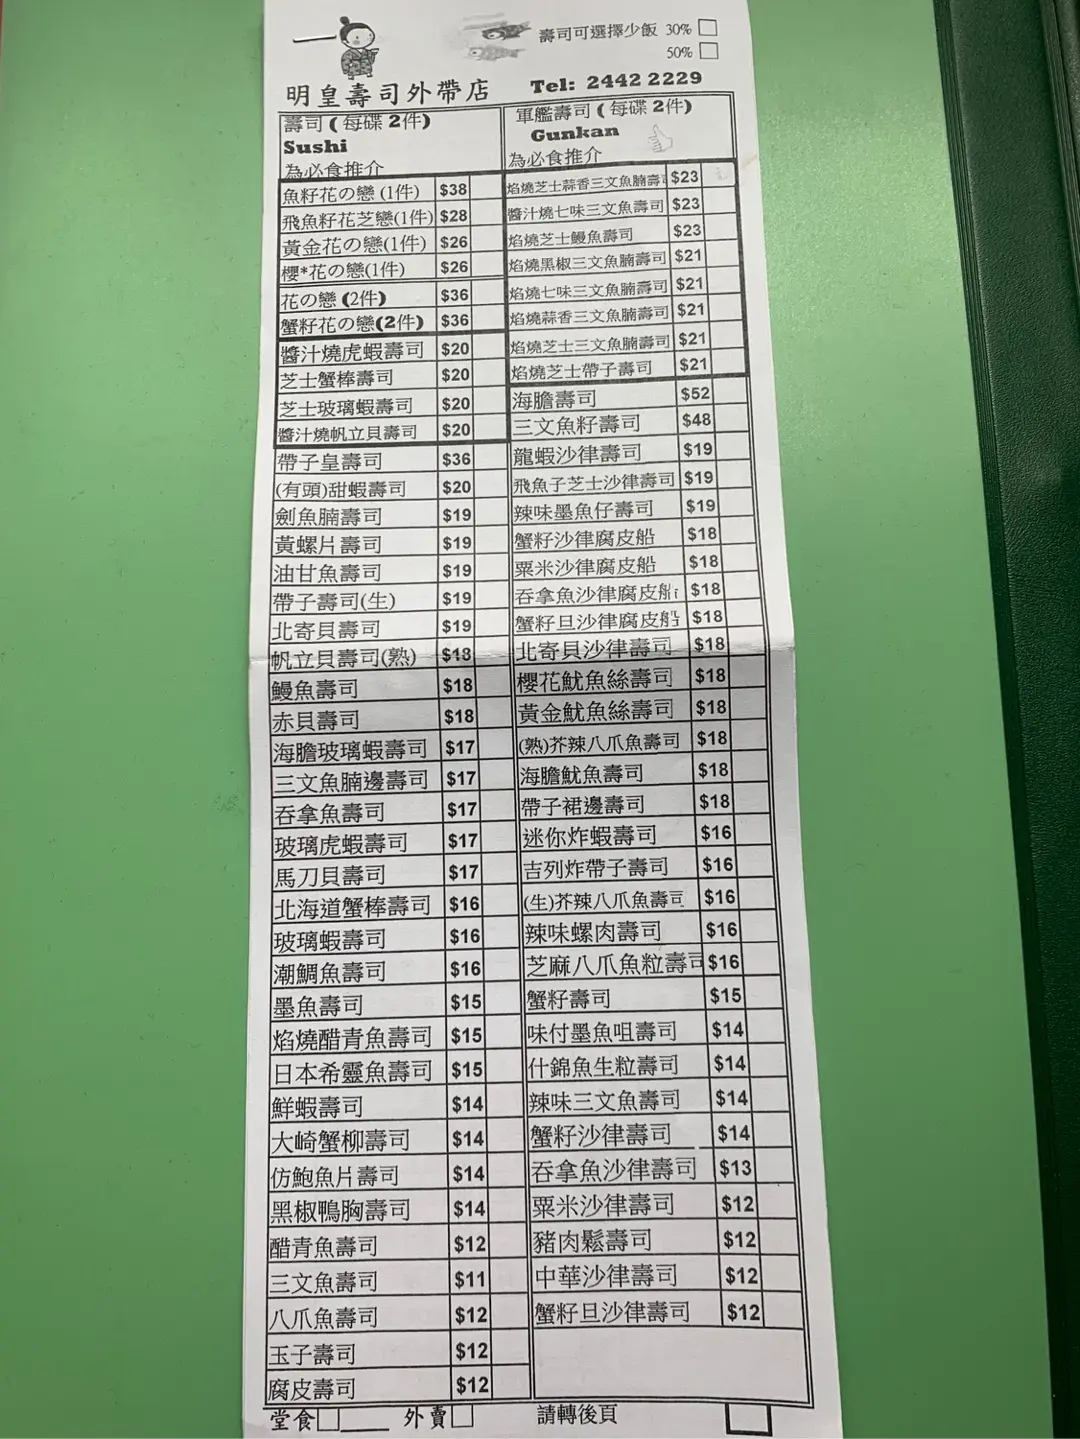 壽司可選擇少飯 30%
50%
明皇壽司外帶店
Tel: 2442 2229
壽司 ( 每碟 2件)
Sushi
為必食推介
魚籽花の戀 (1件) $38
飛魚籽花芝戀(1件) $28
黃金花の戀(1件) $26
櫻*花の戀(1件) $26
花の戀 (2件) $36
蟹籽花の戀(2件) $36
醬汁燒虎蝦壽司 $20
芝士蟹棒壽司 $20
芝士玻璃蝦壽司 $20
醬汁燒帆立貝壽司 $20
帶子皇壽司 $36
(有頭)甜蝦壽司 $20
劍魚腩壽司 $19
黃螺片壽司 $19
油甘魚壽司 $19
帶子壽司(生) $19
北寄貝壽司 $19
帆立貝壽司(熟) $18
鰻魚壽司 $18
赤貝壽司 $18
海膽玻璃蝦壽司 $17
三文魚腩邊壽司 $17
吞拿魚壽司 $17
玻璃虎蝦壽司 $17
馬刀貝壽司 $17
北海道蟹棒壽司 $16
玻璃蝦壽司 $16
潮鯛魚壽司 $16
墨魚壽司 $15
焰燒醋青魚壽司 $15
日本希靈魚壽司 $15
鮮蝦壽司 $14
大崎蟹柳壽司 $14
仿鮑魚片壽司 $14
黑椒鴨胸壽司 $14
醋青魚壽司 $12
三文魚壽司 $11
八爪魚壽司 $12
玉子壽司 $12
腐皮壽司 $12
軍艦壽司 ( 每碟 2件)
Gunkan
為必食推介
焰燒芝士蒜香三文魚腩壽 $23
醬汁燒七味三文魚壽司 $23
焰燒芝士鰻魚壽司 $23
焰燒黑椒三文魚腩壽司 $21
焰燒七味三文魚腩壽司 $21
焰燒蒜香三文魚腩壽司 $21
焰燒芝士三文魚腩壽司 $21
焰燒芝士帶子壽司 $21
海膽壽司 $52
三文魚籽壽司 $48
龍蝦沙律壽司 $19
飛魚子芝士沙律壽司 $19
辣味墨魚仔壽司 $19
蟹籽沙律腐皮船 $18
粟米沙律腐皮船 $18
吞拿魚沙律腐皮船 $18
蟹籽旦沙律腐皮船 $18
北寄貝沙律壽司 $18
櫻花魷魚絲壽司 $18
黃金魷魚絲壽司 $18
(熟)芥辣八爪魚壽司 $18
海膽魷魚壽司 $18
帶子裙邊壽司 $18
迷你炸蝦壽司 $16
吉列炸帶子壽司 $16
(生)芥辣八爪魚壽司 $16
辣味螺肉壽司 $16
芝麻八爪魚粒壽司 $16
蟹籽壽司 $15
味付墨魚咀壽司 $14
什錦魚生粒壽司 $14
辣味三文魚壽司 $14
蟹籽沙律壽司 $14
吞拿魚沙律壽司 $13
粟米沙律壽司 $12
豬肉鬆壽司 $12
中華沙律壽司 $12
蟹籽旦沙律壽司 $12
堂食 外賣 請轉後頁